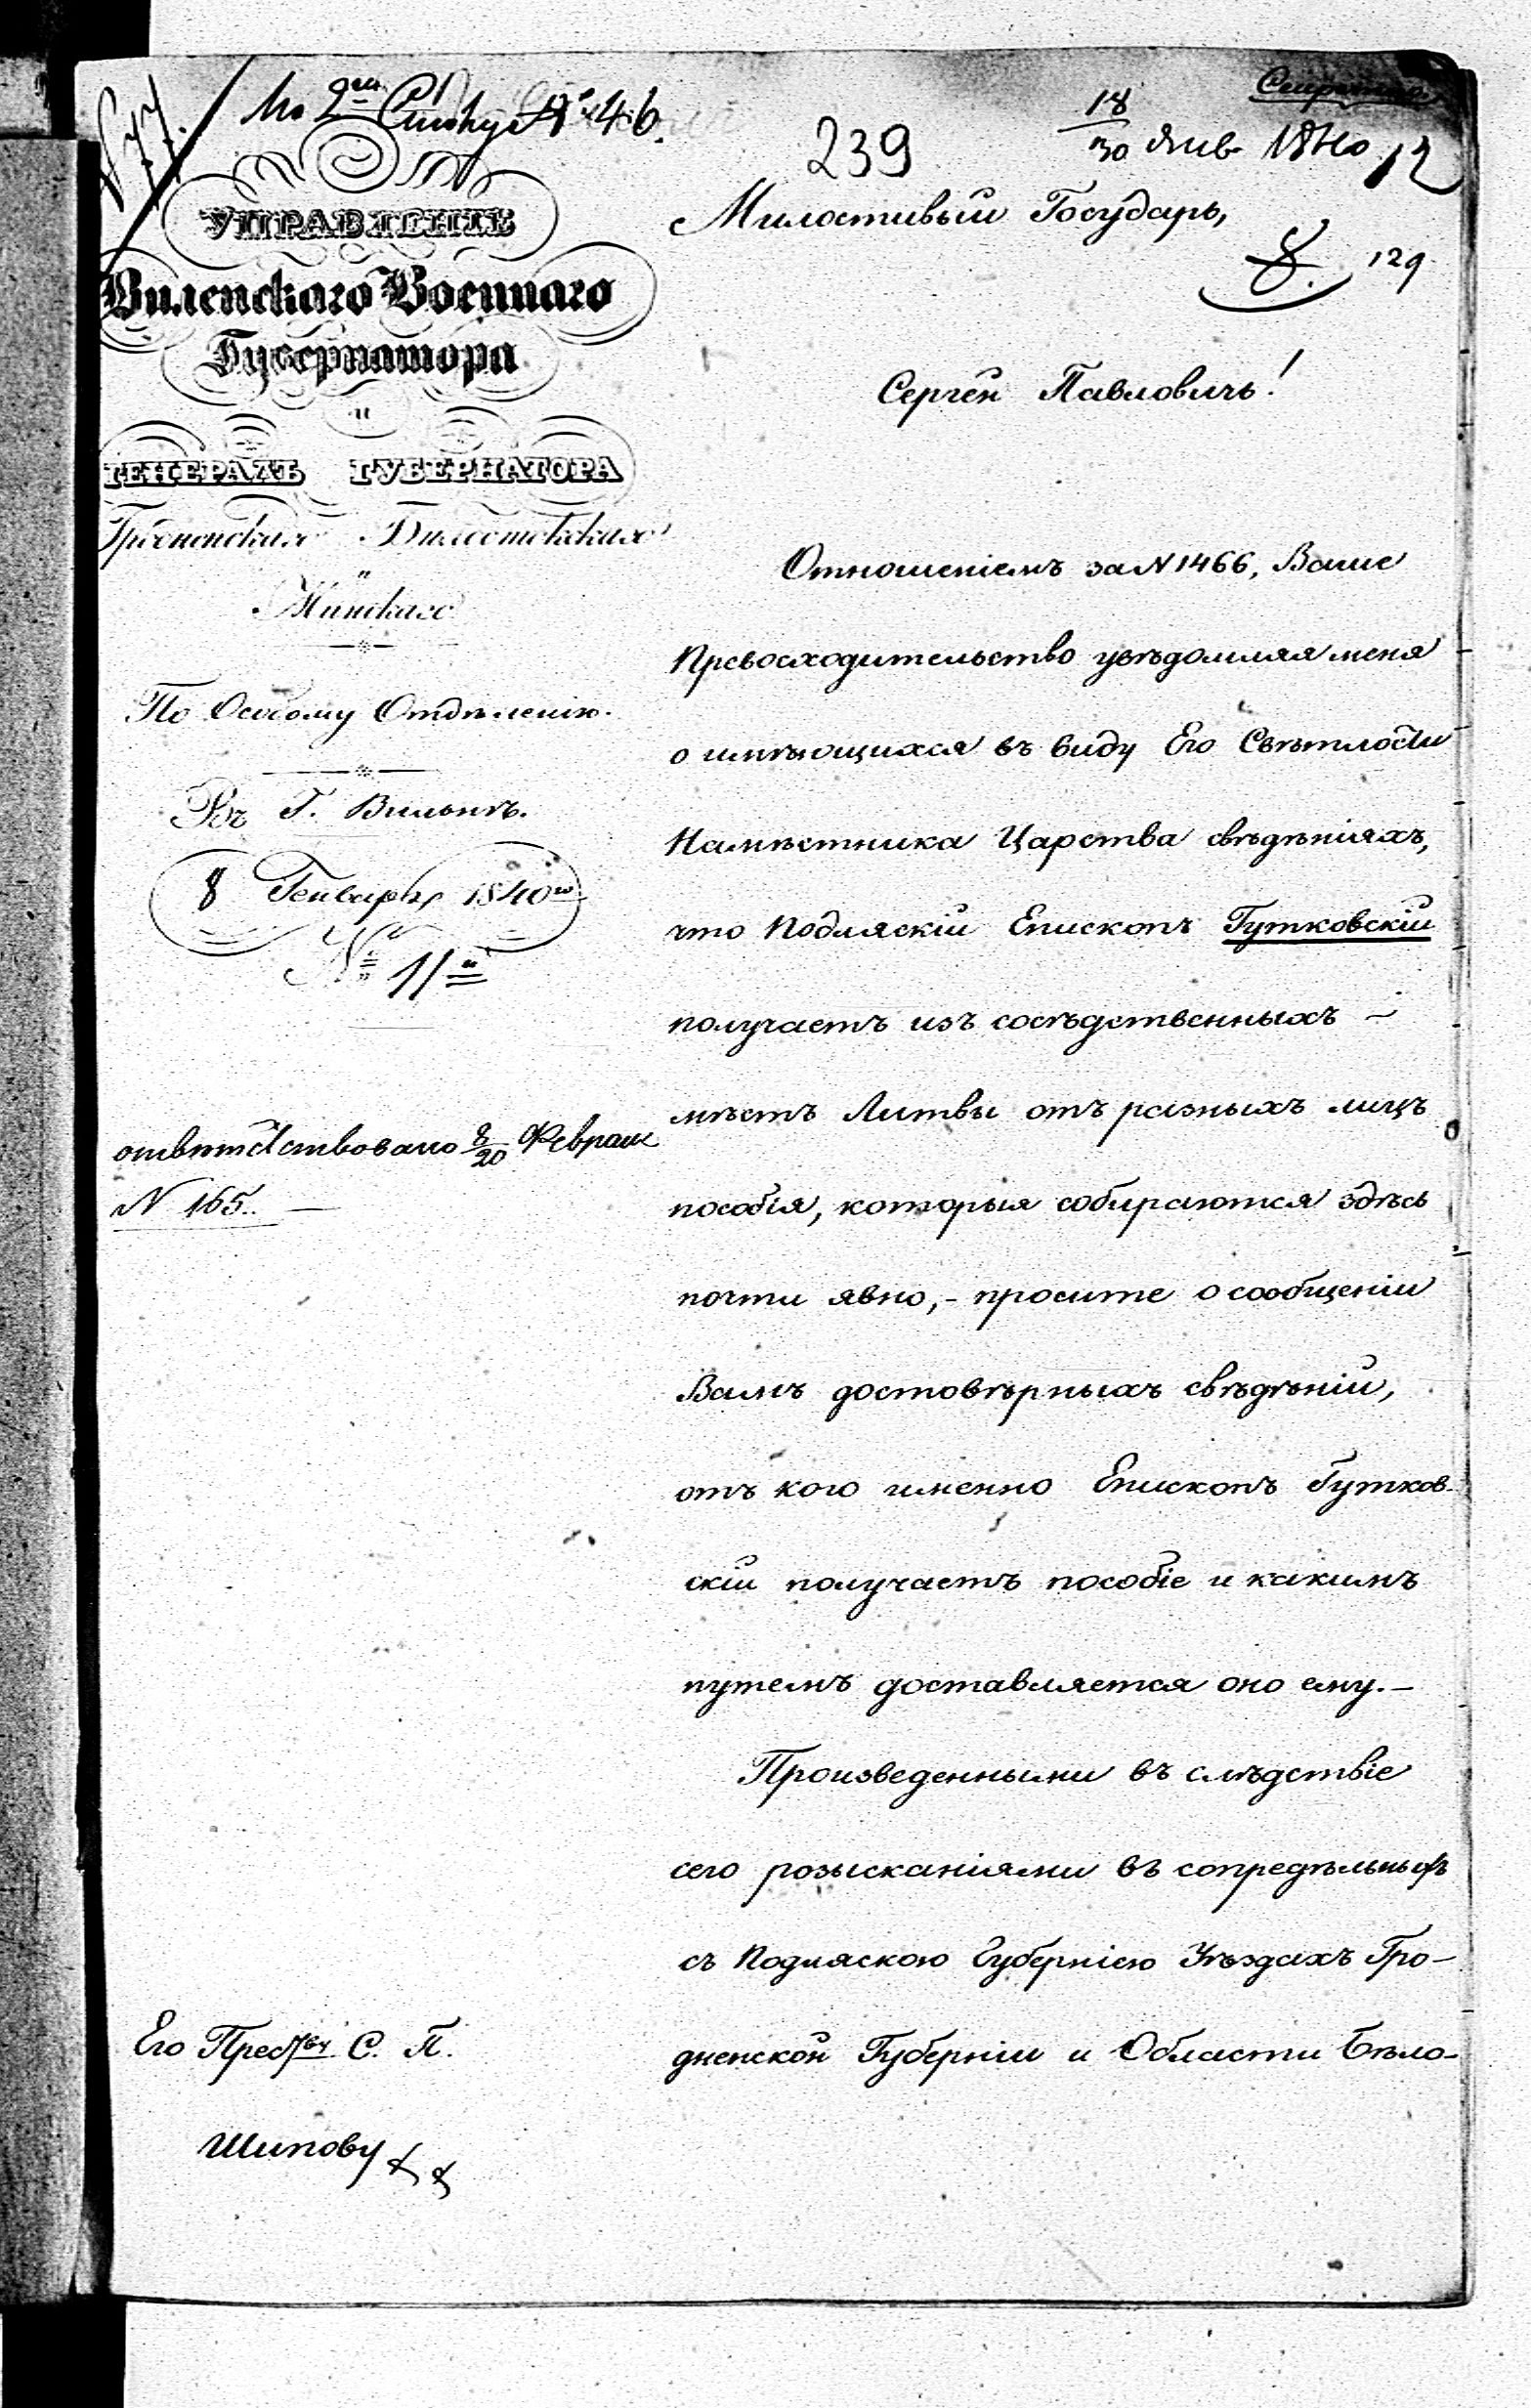 Секретно
По 2му Списку № 46.
239
18/30 Янв 1840
12
129
УПРАВЛЕНІЕ
Виленскаго Военнаго
Губернатора
и
ГЕНЕРАЛЪ ГУБЕРНАТОРА
Гродненскаго Бѣлостокскаго
и
Минскаго
По Особому Отдѣленію.
Въ Г. Вильнѣ.
8 Генваря 1840го
№ 11й
отвѣтствовано 8/20 Февраля
N 165.
Милостивый Государь,
Сергѣй Павловичь!
Отношеніемъ за N 1466, Ваше
Превосходительство увѣдомляя меня
о имѣющихся въ виду Его Свѣтлости
Намѣстника Царства свѣдѣніяхъ,
что Подляскій Епископъ Гутковскій
получаетъ изъ сосѣдственныхъ –
мѣстъ Литвы отъ разныхъ лицъ
пособія, которыя собираются здѣсь
почти явно,- просите о сообщеніи
Вамъ достовѣрныхъ свѣдѣній,
отъ кого именно Епископъ Гутков-
скій получаетъ пособіе и какимъ
путемъ доставляется оно ему.–
Произведенными въ слѣдствіе
сего розысканіями въ сопредѣльныхъ
съ Подляскою Губерніею Уѣздахъ Гро-
дненской Губерніи и Области Бѣло-
Его Прев-ву С. П.
Шипову